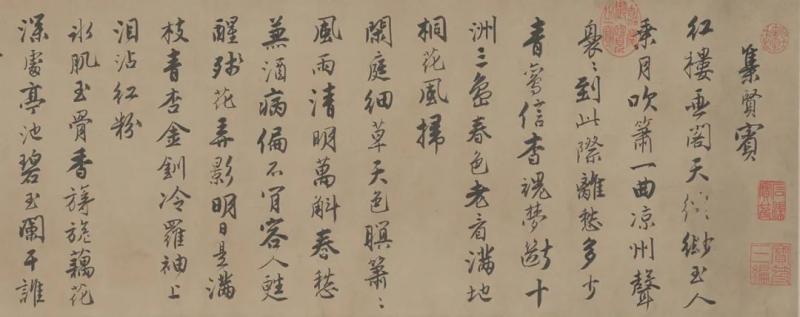 集賢賓
紅樓閣天縹緲玉人
乘月吹簫一曲凉州聲
裊〻到此際離愁多少
青鸞信杳魂夢斷十
洲三島春色老看滿地
桐花風掃
閑庭細草天色暝簫〻
風雨清明萬斛春愁
兼酒病偏不肯容人甦
醒殘花弄影明日是滿
枝青杏金釧冷羅袖上
泪沾紅粉
冰肌玉骨香旖旎藕花
深處亭池碧玉闌干誰